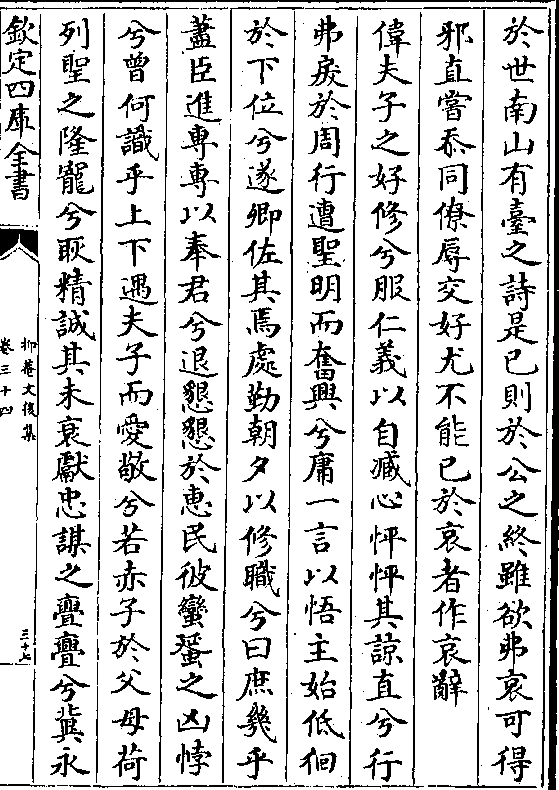 於世南山有臺之詩是已則於公之終雖欲弗哀可得
邪直嘗忝同僚辱交好尤不能已於哀者作哀辭
偉夫子之好修兮服仁義以自臧心怦怦其諒直兮行
弗戾於周行遭聖明而奮興兮庸一言以悟主始低徊
於下位兮遂卿佐其焉處勤朝夕以修職兮曰庶㡬乎
藎臣進專專以奉君兮退懇懇於惠民彼蠻蜑之凶悖
兮曾何識乎上下遇夫子而愛敬兮若赤子於父母荷
列聖之隆寵兮耿精誠其未衰獻忠謀之亹亹兮冀永
欽定四庫全書
抑菴文後集
卷三十四
三十七